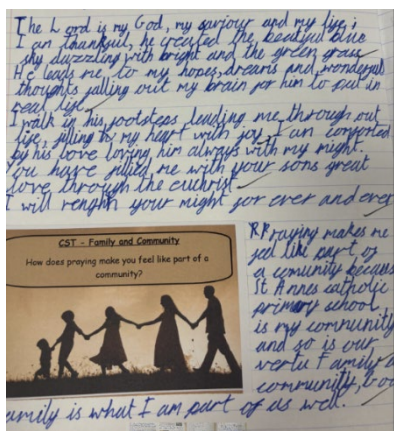 The Lord is my God, my saviour and my life,
I am thankful, he created the beatiful blue
sky dazzling with bright and the green grass
He leads me to my hopes, dreams and wonderful
thoughts falling out my brain for him to put in
real life.
I walk in his footsteps leading me through out
life, filling my heart with joy, I am conforted
by his love loving him always with my might.
You have filled me with your sons great
love through the euchrist.
I will your might for ever and ever
CST - Family and Community
How does praying make you feel like part of a
community?
Praying makes me
feel like part of
a comunity because
St Annes catholic
primary school
is my community
and so is our
Family
community,
family is what I am part of as well.